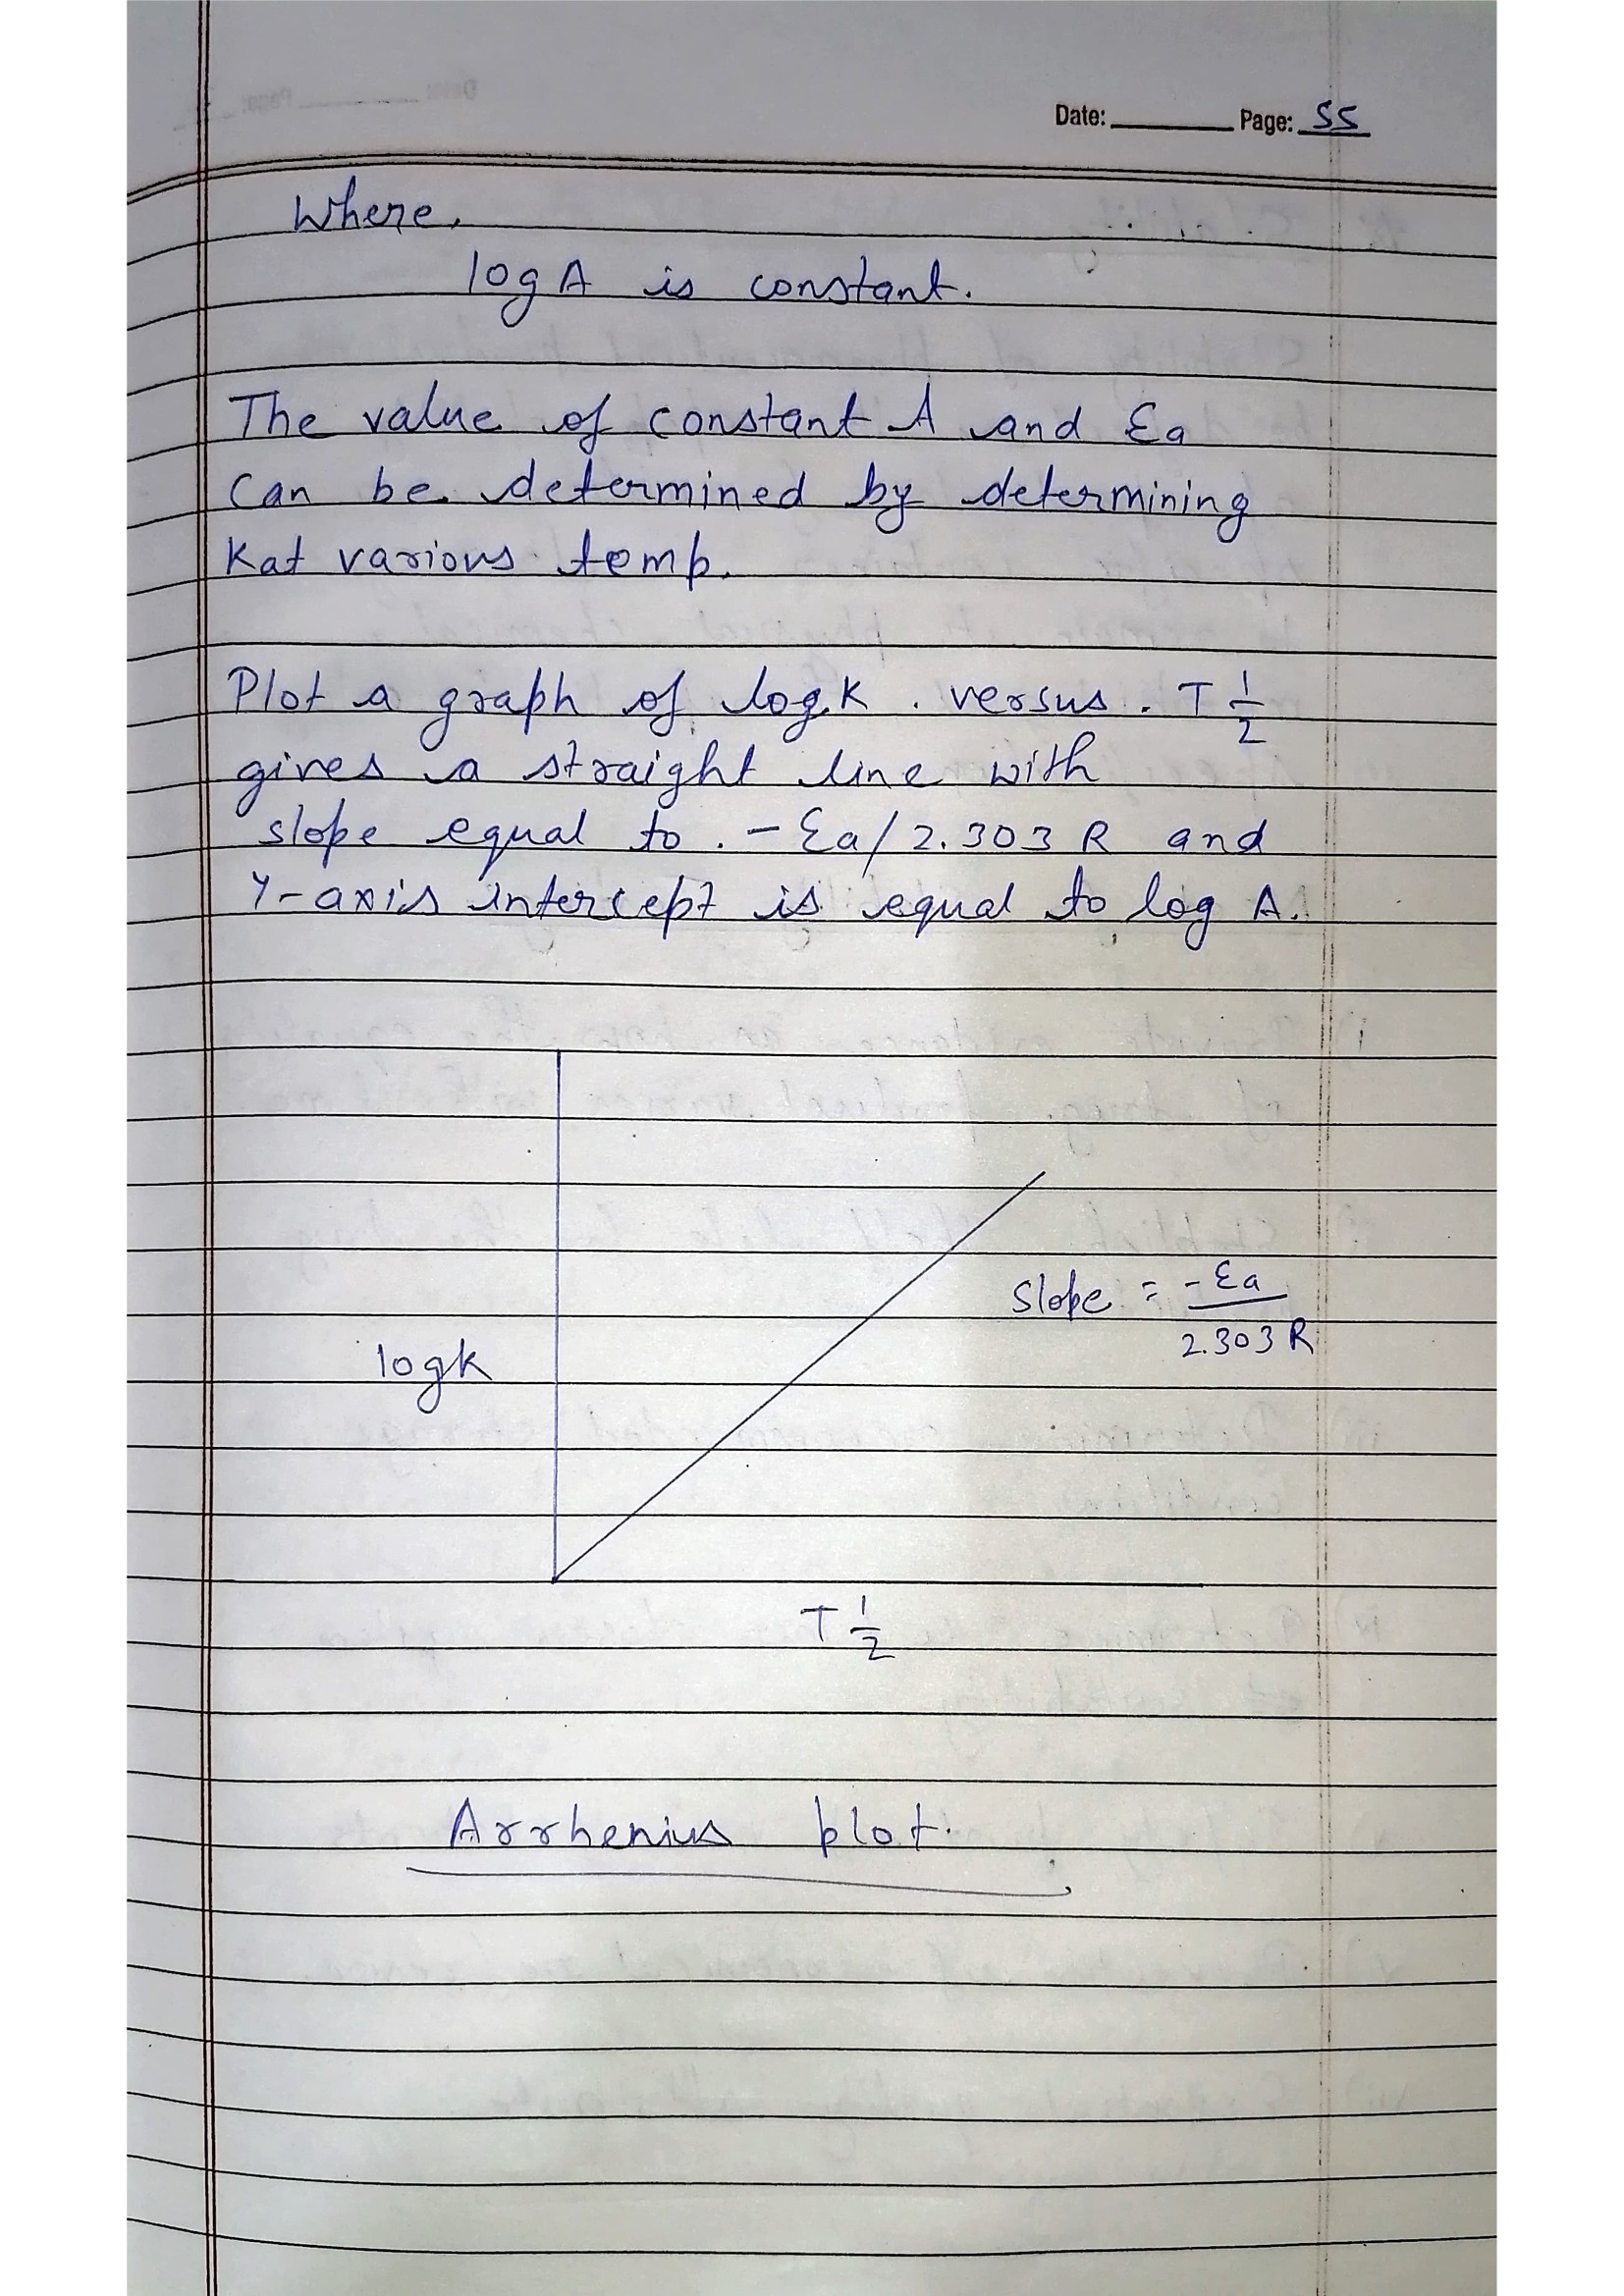 Date: Page: 55
Where,
log A is constant.
The value of constant A and Ea
Can be determined by determining
K at various temp.
Plot a graph of log K versus T 1/2
gives a straight line with
slope equal to. - Ea/2.303 R and
Y-axis intercept is equal to log A.
Slope = -Ea/2.303 R
log K
T 1/2
Arrhenius plot.